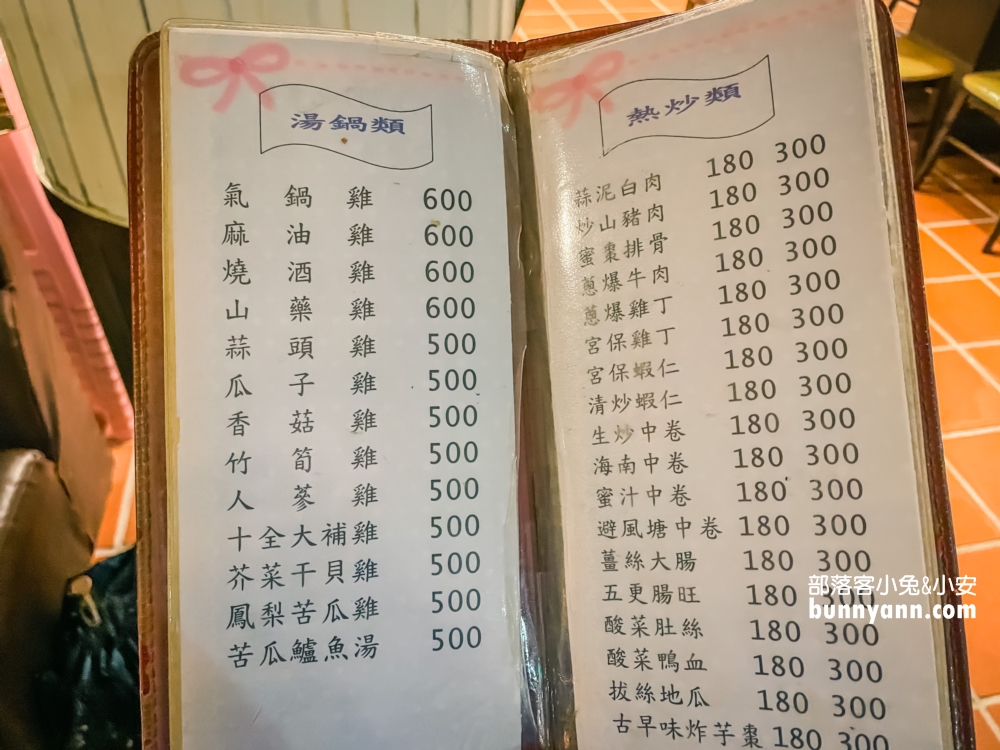 湯鍋類
氣鍋雞 600
麻油雞 600
燒酒雞 600
山藥雞 600
蒜頭雞 500
瓜子雞 500
香菇雞 500
竹筍雞 500
人蔘雞 500
十全大補雞 500
芥菜干貝雞 500
鳳梨苦瓜雞 500
苦瓜鱸魚湯 500
熱炒類
蒜泥白肉 180 300
炒山豬肉 180 300
蜜棗排骨 180 300
蔥爆牛肉 180 300
蔥爆雞丁 180 300
宮保雞丁 180 300
宮保蝦仁 180 300
清炒蝦仁 180 300
生炒中卷 180 300
海南中卷 180 300
蜜汁中卷 180 300
避風塘中卷 180 300
薑絲大腸 180 300
五更腸旺 180 300
酸菜肚絲 180 300
酸菜鴨血 180 300
拔絲地瓜 180 300
古早味炸芋棗 180 300
部落客小兔&小安
bunnyann.com